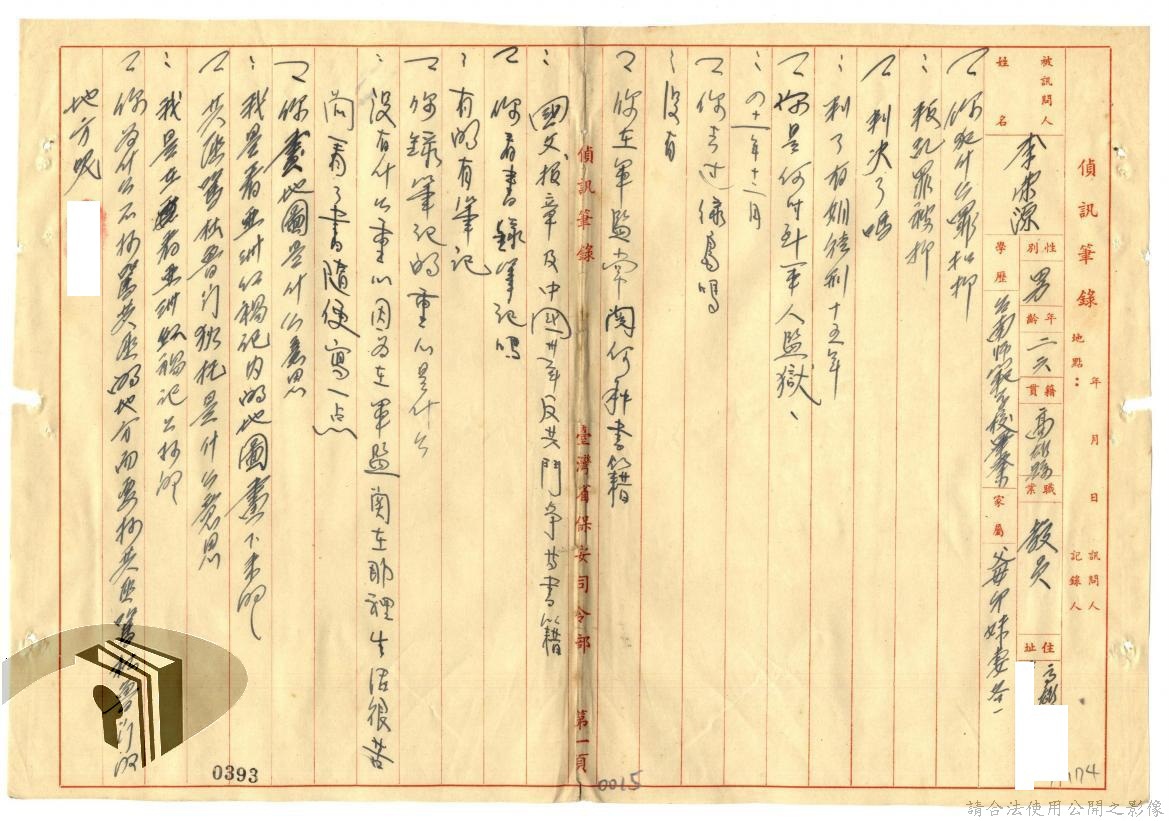 偵訊筆錄 地點： 年 月 日 訊問人 記錄人
被訊問人姓名 李荣源 性別 男 年齡 二六 籍貫 高雄縣 職業 教員 住址 高雄
學歷 台南師範學校畢業 家屬 父母弟妹妻各一
問 你犯什么罪扣押
答 叛乱罪被押
問 判决了嗎
答 判了有期徒刑十五年
問 你是何时到軍人監獄
答 四十一年十二月
問 你去过绿島嗎
答 沒有
問 你在軍監常閱何种書籍
偵訊筆錄 臺灣省保安司令部 第一頁
答 國父报章及中國卅年反共鬥争等書籍
問 你看書錄筆记嗎
答 有的有筆记
問 你錄筆记的重心是什么
答 沒有什么重心因为在軍監関在那裡生活很苦
尚看了書隨便寫一点
問 你畫地圖是什么意思
答 我是看亚洲红祸记内的地圖畫下来的
問 共匪駡杜魯门狄托是什么意思
答 我是在看亚洲红祸记上抄的
問 你为什么不抄駡共匪的地方而要抄共匪駡杜魯门的
地方呢
0393
0015
174
請合法使用公開之影像